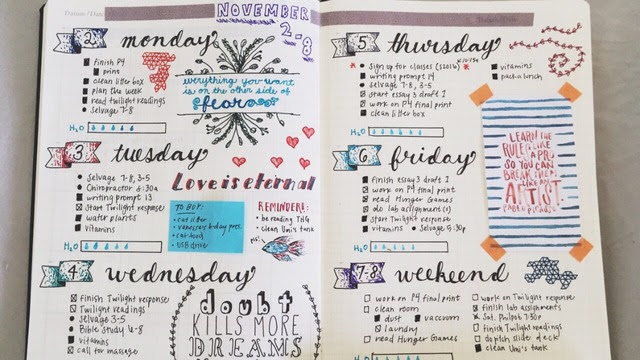 NOVEMBER
2-8
2 monday
finish P4
print
clean litter box
plan the week
read twilight readings
Selvage 7-8
H2O
everything you want
is on the other side of
fear
3 tuesday
Selvage 7-8, 3-5
Chiropractor 6:30a
writing prompt 13
Start Twilight response
water plants
vitamins
H2O
Love is eternal
TO BUY:
cat litter
vanessa's bday pres.
cat food
USB drive
REMINDERS:
be reading THG
clean Uni's tank
4 wednesday
finish Twilight response
Twilight readings
Selvage 3-5
Bible Study 6-8
vitamins
call for massage
doubt
KILLS MORE
DREAMS
5 thursday
Sign up for classes
writing prompt 14
Selvage 7-8, 3-5
start essay 3 draft 1
work on P4 final print
clean litter box
vitamins
pack a lunch
H2O
6 friday
finish essay 3 draft 1
work on P4 final print
read Hunger Games
do lab assignment(s)
Start Twilight response
vitamins
Selvage 5:30p
H2O
LEARN THE
RULES LIKE
A PRO,
SO YOU CAN
BREAK THEM
LIKE AN
ARTIST.
PABLO PICASSO
7-8 weekend
work on P4 final print
clean room
dust
vacuum
laundry
read Hunger Games
work on Twilight response
finish lab assignments
Sat. Philpot 7:30p
finish Twilight readings
do pitch slide deck
clean Uni's tank